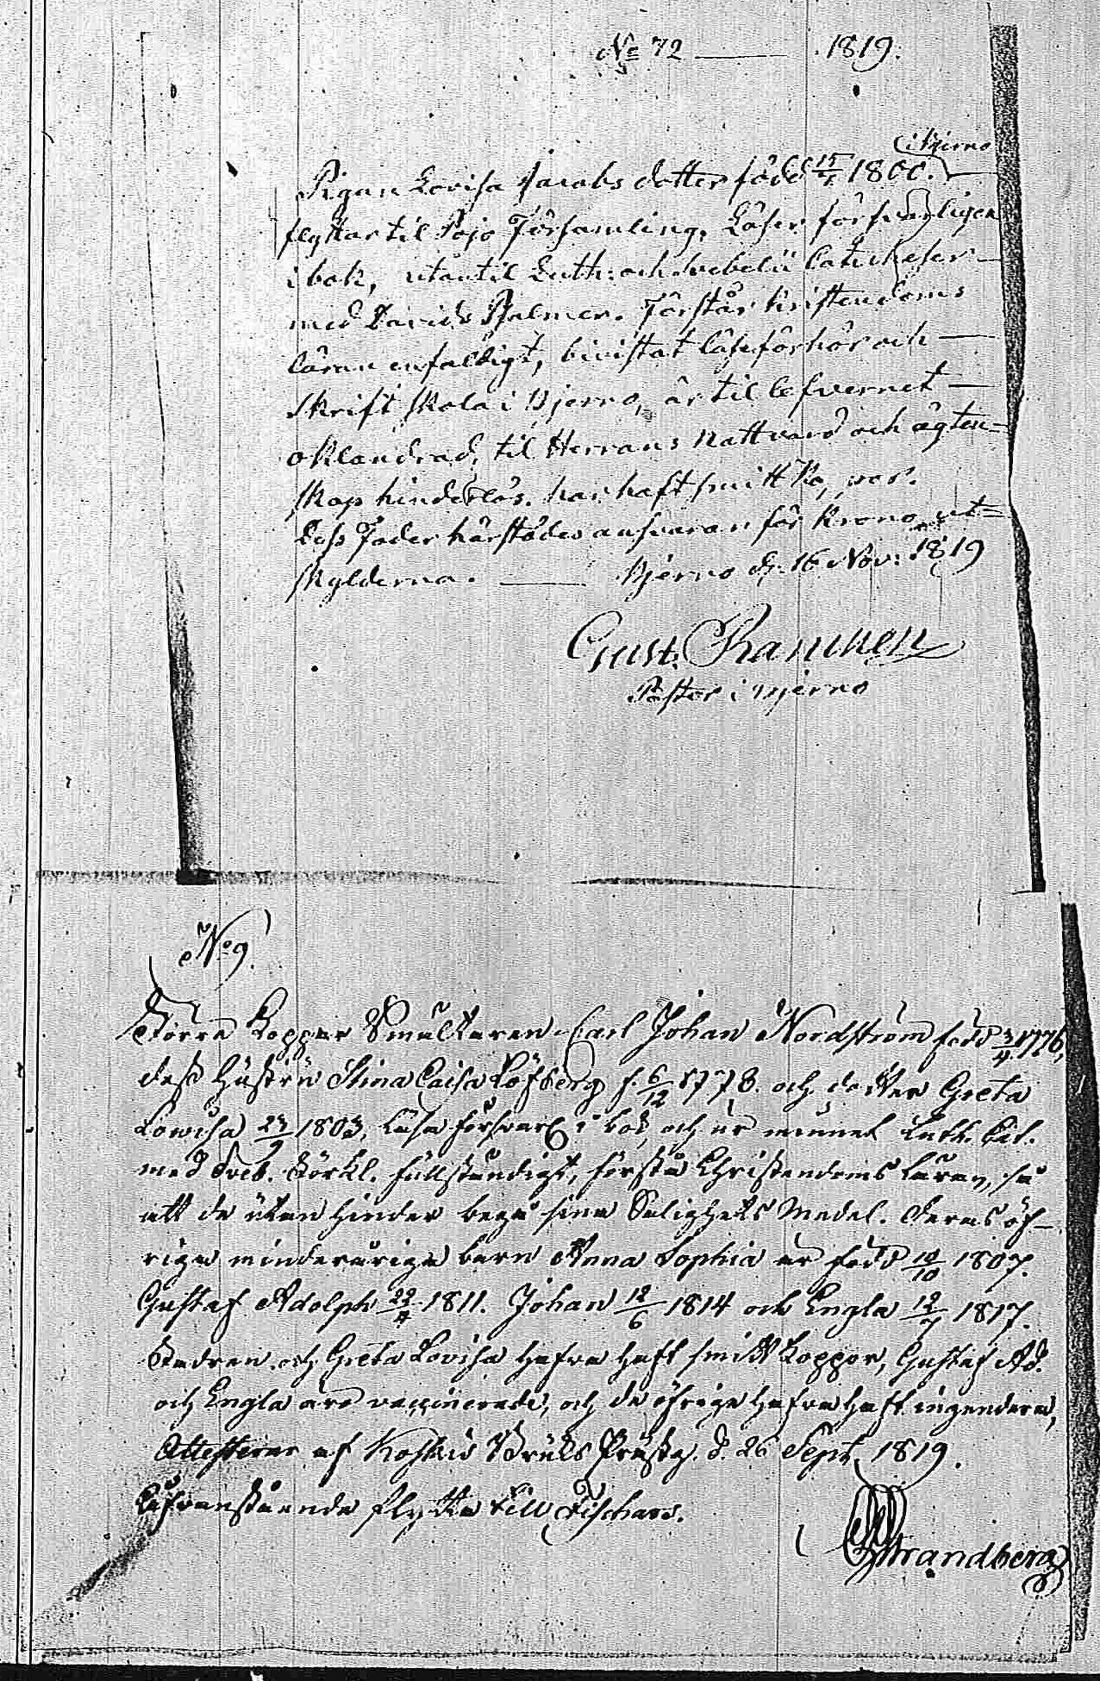 No 72 — 1819.
i Kjerno
Pigan Lovisa Jacobs dotter född 15/ 1800.
flyttar til Pojo Församling. Läser försvarligen
i bok, utantil Luth: och Svebelii Catecheser
med Davids Psalmer. Förstår Kristendoms
läran enfaldigt, bivistat läseförhör och
Skriftskola i Kjerno, är til lefvernet
oklandrad, til Herrans Nattvard och ägten-
skap hinderlös. har haft smitt Ko, por.
Dess Fader härstädes ansvarar för Krono ut-
skylderna. — Kjerno d. 16 Nov: 1819
Gust. Rancken
Pastor i Kjerno
No 9.
Koppar Smältaren Carl Johan Nordström född 3/4 1776,
dess hustru Stina Caisa Löfberg f. 6/12 1778. och dotter Greta
Lowisa 23/9 1803, läsa försvarl. i bok, och ur minnet Luth. Cat.
med Sveb. Förkl. fullständigt, förstå Christendoms Läran, så
att de utan hinder begå sina Salighets Medel. Deras öf-
riga minderåriga barn Anna Sophia är född 10/10 1807.
Gustaf Adolph 22/4 1811. Johan 12/6 1814 och Engla 12/7 1817.
Fadren och Greta Lovisa hafva haft smitt Koppor, Gustaf Ad.
och Engla äro vaccinerade, och de öfriga hafva haft ingendera,
Attesterar af Koskis Bruks Prästg. d. 26 Sept. 1819.
Ofvanstående flytta till Fischars.
Strandberg